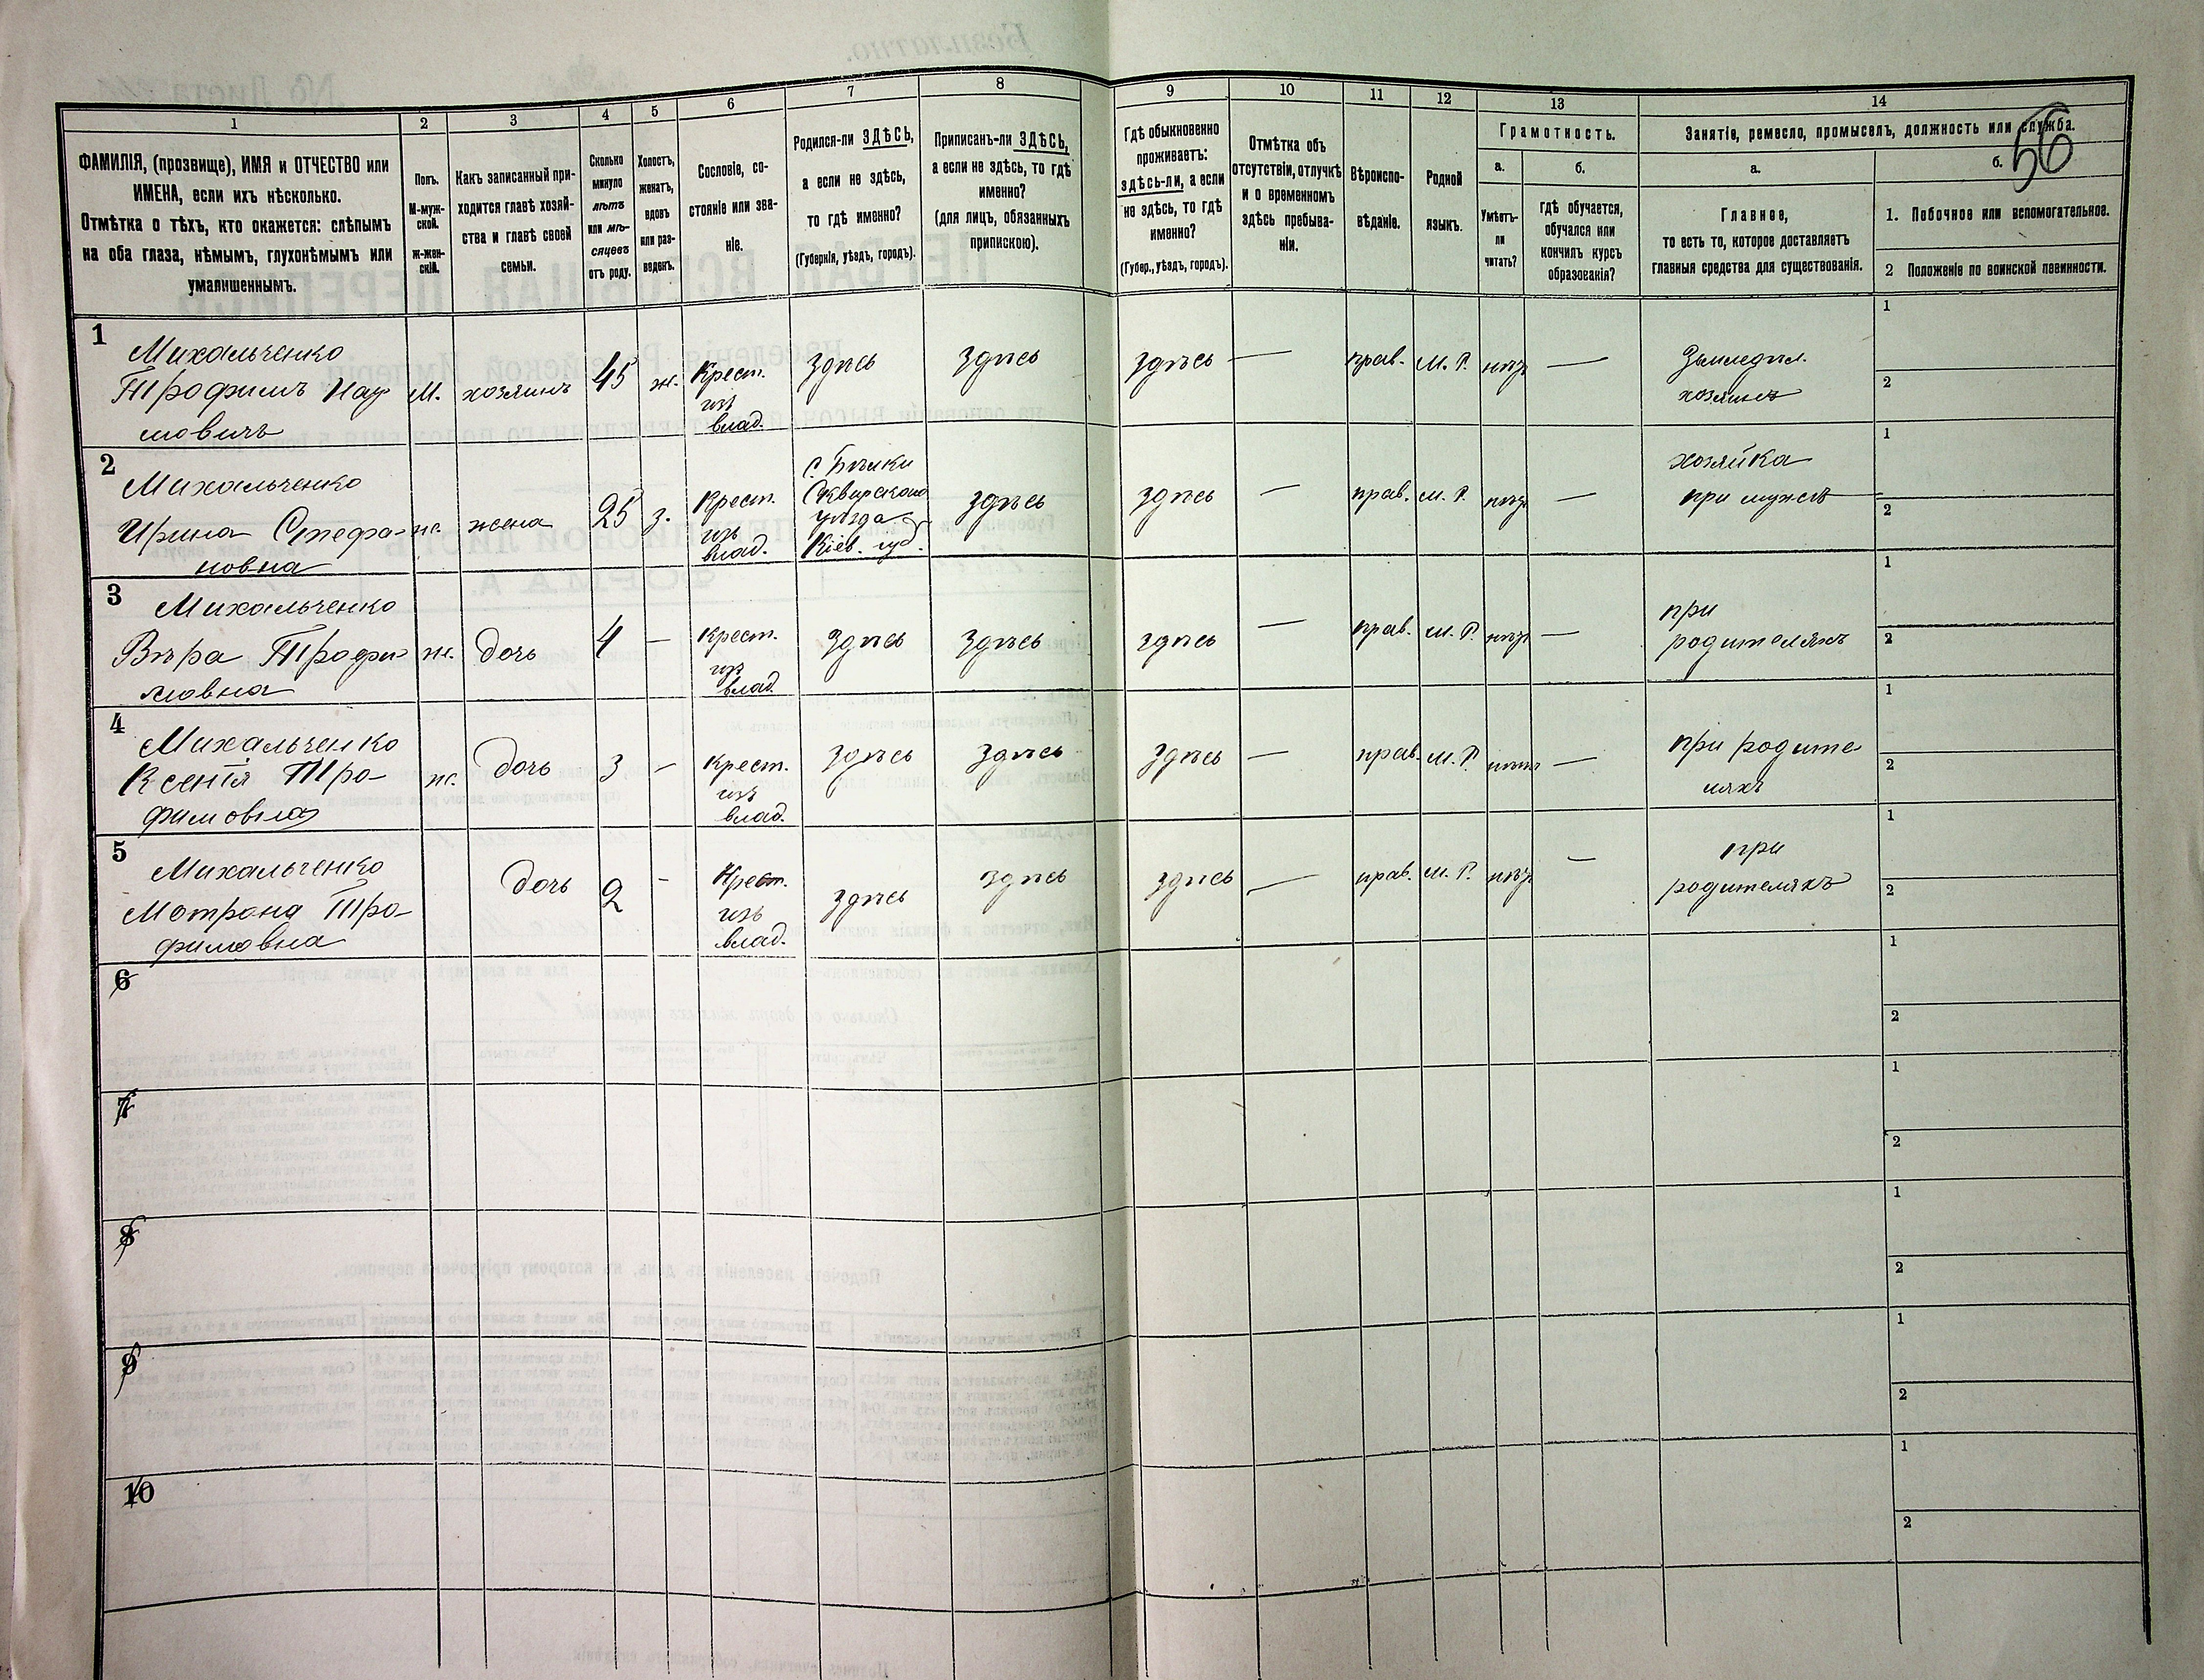 56
1 2 3 4 5 6 7 8 9 10 11 12 13 14
ФАМИЛІЯ, (прозвище), ИМЯ и ОТЧЕСТВО или
ИМЕНА, если ихъ нѣсколько.
Отмѣтка о тѣхъ, кто окажется: слѣпымъ
на оба глаза, нѣмымъ, глухонѣмымъ или
умалишеннымъ.
Полъ.
М-муж-
ской.
ж-жен-
скій.
Какъ записанный при-
ходится главѣ хозяй-
ства и главѣ своей
семьи.
Сколько
минуло
лѣтъ
или мѣ-
сяцевъ
отъ роду.
Холостъ,
женатъ,
вдовъ
или раз-
веденъ.
Сословіе, со-
стояніе или зва-
ніе.
Родился-ли ЗДѢСЬ,
а если не здѣсь,
то гдѣ именно?
(Губернія, уѣздъ, городъ).
Приписанъ-ли ЗДѢСЬ,
а если не здѣсь, то гдѣ
именно?
(для лицъ, обязанныхъ
припискою).
Гдѣ обыкновенно
проживаетъ:
здѣсь-ли, а если
не здѣсь, то гдѣ
именно?
(Губер., уѣздъ, городъ).
Отмѣтка объ
отсутствіи, отлучкѣ
и о временномъ
здѣсь пребыва-
ніи.
Вѣроиспо-
вѣданіе.
Родной
языкъ.
Грамотность.
а.
Умѣетъ-
ли
читать?
б.
гдѣ обучается,
обучался или
кончилъ курсъ
образованія?
Занятіе, ремесло, промыселъ, должность или служба.
а.
Главное,
то есть то, которое доставляетъ
главныя средства для существованія.
б.
1. Побочное или вспомогательное.
2 Положеніе по воинской повинности.
1
Михальченко
Трофимъ Нау
мовичъ
М.
хозяинъ
45
ж.
Крест.
изъ
влад.
здѣсь
здѣсь
здѣсь
—
прав.
М. Р.
нѣтъ
—
Земледѣл.
хозяинъ
1
2
2
Михальченко
Ирина Стефа-
новна
ж.
жена
25
з.
Крест.
изъ
влад.
с. Бѣлки
Сквирскаго
уѣзда
Кіев. губ.
здѣсь
здѣсь
—
прав.
М. Р.
нѣтъ
—
хозяйка
при мужѣ
1
2
3
Михальченко
Вѣра Трофи-
мовна
ж.
дочь
4
—
Крест.
изъ
влад.
здѣсь
здѣсь
здѣсь
—
прав.
М. Р.
нѣтъ
—
при
родителяхъ
1
2
4
Михальченко
Ксенія Тро-
фимовна
ж.
дочь
3
—
Крест.
изъ
влад.
здѣсь
здѣсь
здѣсь
—
прав.
М. Р.
нѣтъ
—
при родите
ляхъ
1
2
5
Михальченко
Мотрона Тро-
фимовна
дочь
2
-
Крест.
изъ
влад.
здѣсь
здѣсь
здѣсь
—
прав.
М. Р.
нѣтъ
—
при
родителяхъ
1
2
6
1
2
7
1
2
8
1
2
9
1
2
10
1
2